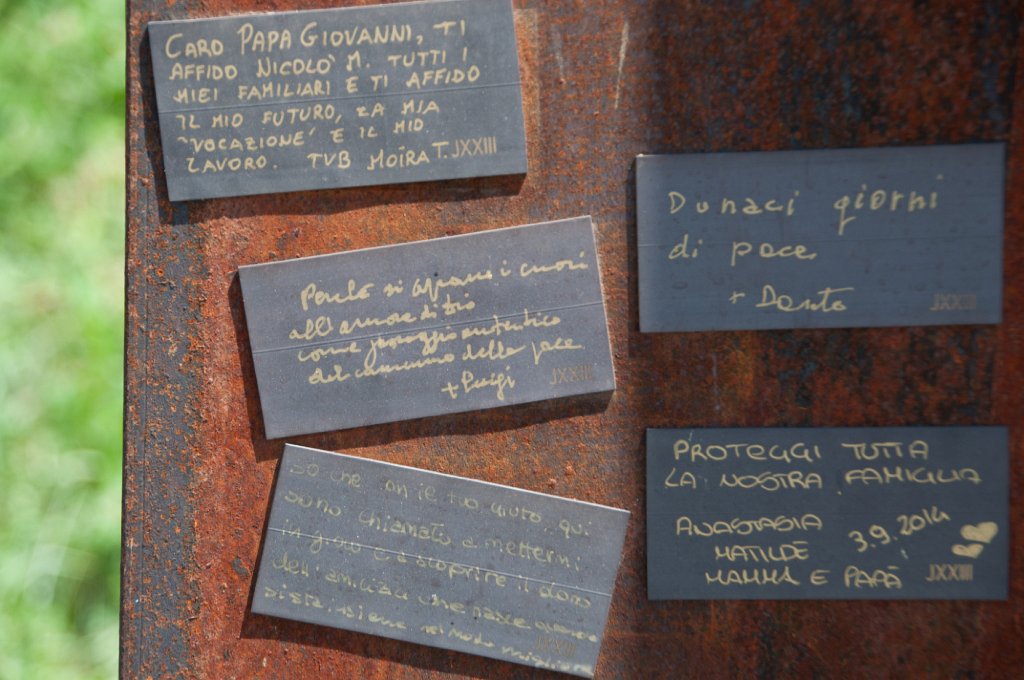 CARO PAPA GIOVANNI, TI
AFFIDO NICOLO' M. TUTTI I
MIEI FAMILIARI E TI AFFIDO
IL MIO FUTURO, LA MIA
"VOCAZIONE" E IL MIO
LAVORO. TVB MOIRA T. JXXIII
Dunaci giorni
di pace
+ Dento
JXXIII
Perché si aprano i cuori
all'amore di Dio
come passaggio autentico
del cammino della pace
+ Luigi
JXXIII
PROTEGGI TUTTA
LA NOSTRA FAMIGLIA
ANASTASIA 3.9.2014
MATILDE
MAMMA E PAPÀ
JXXIII
So che, con il tuo aiuto, qui
sono chiamato a mettermi
in gioco e a scoprire il dono
dell'amicizia che nasce
nel modo migliore